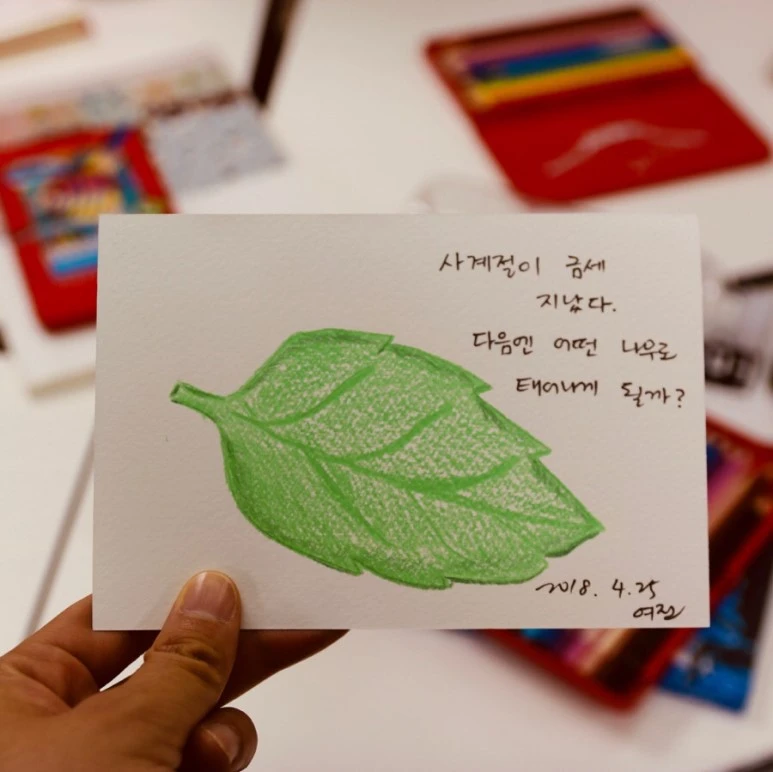 사계절이 금세
지났다.
다음엔 어떤 나무로
태어나게 될까?
2018. 4. 25
여진